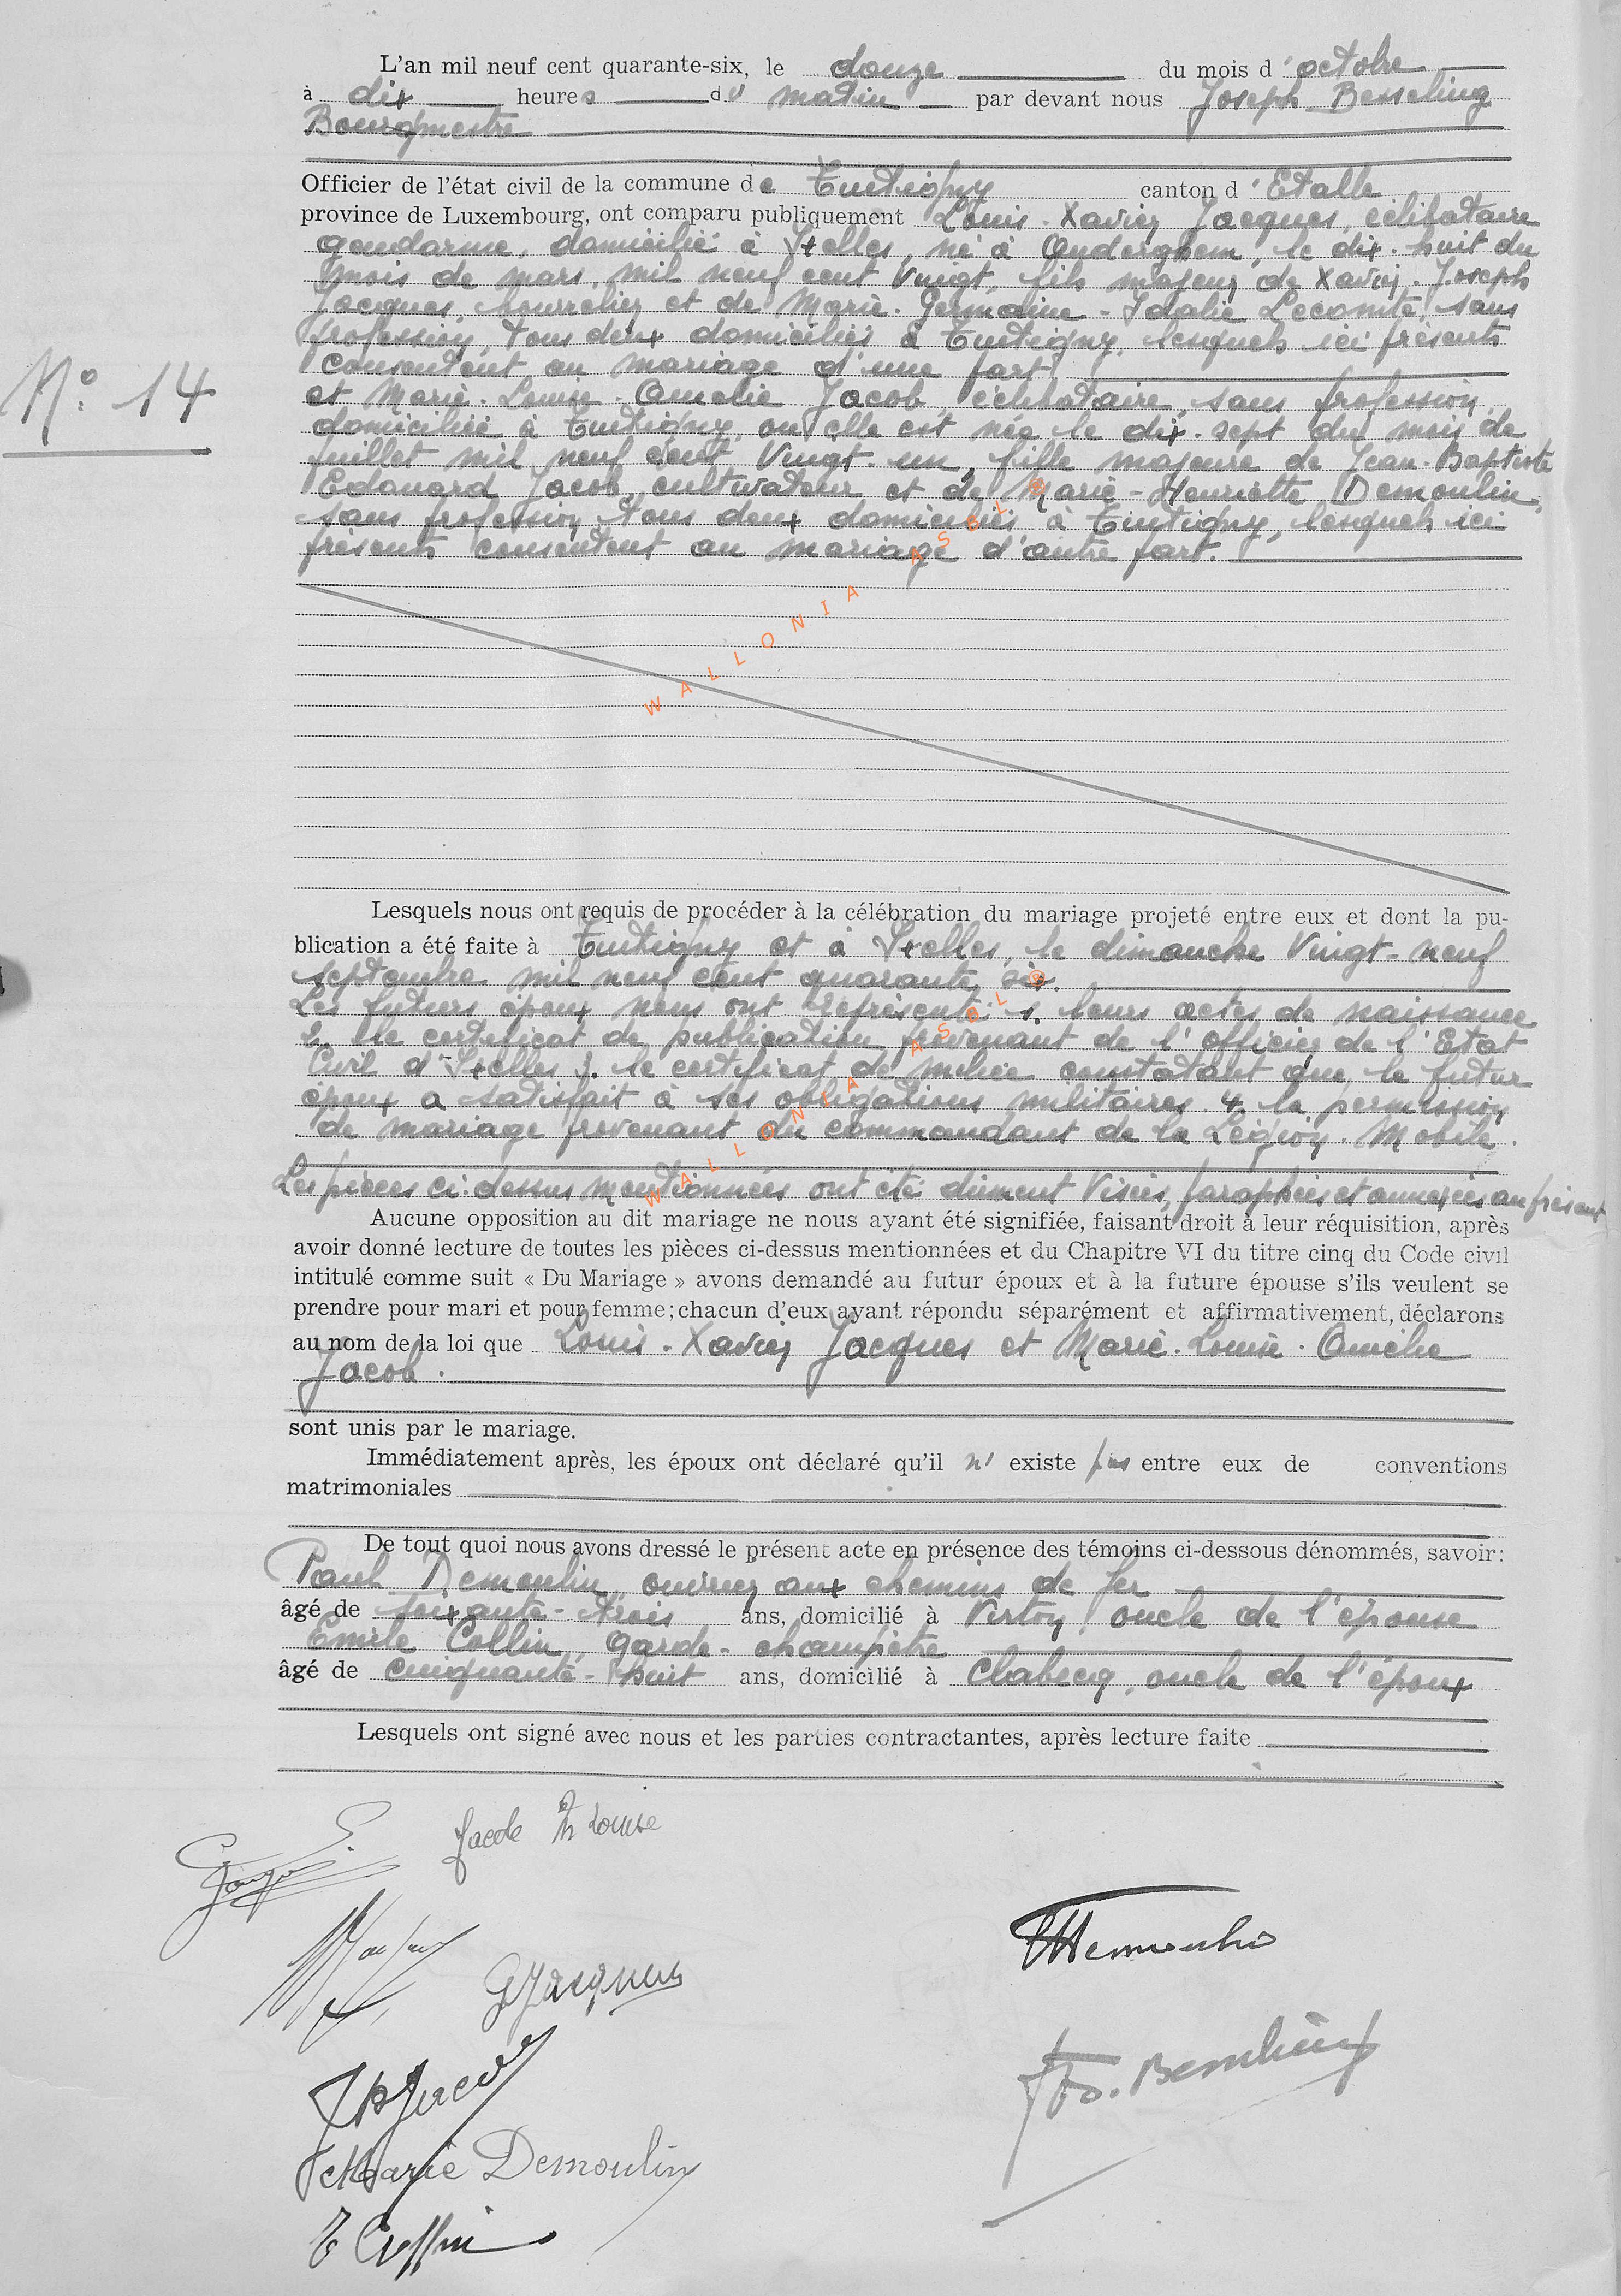 L'an mil neuf cent quarante-six, le douze du mois d'octobre
à dix heures du matin par devant nous Joseph Besseling
Bourgmestre
Officier de l'état civil de la commune de Tintigny canton d'Etalle
province de Luxembourg, ont comparu publiquement Louis-Xavier Jacques, célibataire
gendarme, domicilié à Ixelles, né à Auderghem, le dix-huit du
mois de mars, mil neuf cent vingt, fils majeur de Xavier-Joseph
Jacques, bourrelier et de Marie-Germaine-Idalie Lecomte, sans
profession, tous deux domiciliés à Tintigny, lesquels ici présents
consentent au mariage d'une part,
N° 14
et Marie-Louise-Amélie Jacob, célibataire, sans profession,
domiciliée à Tintigny, où elle est née le dix-sept du mois de
juillet mil neuf cent vingt-un, fille majeure de Jean-Baptiste
Edouard Jacob, cultivateur et de Marie-Henriette Demoulin,
sans profession, tous deux domiciliés à Tintigny, lesquels ici
présents consentent au mariage d'autre part.
WALLONIA ASBL ®
Lesquels nous ont requis de procéder à la célébration du mariage projeté entre eux et dont la pu-
blication a été faite à Tintigny et à Ixelles, le dimanche vingt-neuf
septembre mil neuf cent quarante six.
Les futurs époux nous ont représenté: 1. leurs actes de naissance
2. le certificat de publication provenant de l'officier de l'Etat
Civil d'Ixelles 3. le certificat de milice constatant que le futur
époux a satisfait à ses obligations militaires. 4. la permission
de mariage provenant du commandant de la Légion Mobile.
WALLONIA ASBL ®
Les pièces ci-dessus mentionnées ont été dûment visées, paraphées et annexées au présent
Aucune opposition au dit mariage ne nous ayant été signifiée, faisant droit à leur réquisition, après
avoir donné lecture de toutes les pièces ci-dessus mentionnées et du Chapitre VI du titre cinq du Code civil
intitulé comme suit « Du Mariage » avons demandé au futur époux et à la future épouse s'ils veulent se
prendre pour mari et pour femme; chacun d'eux ayant répondu séparément et affirmativement, déclarons
au nom de la loi que Louis-Xavier Jacques et Marie-Louise-Amélie
Jacob.
sont unis par le mariage.
Immédiatement après, les époux ont déclaré qu'il n'existe pas entre eux de conventions
matrimoniales
De tout quoi nous avons dressé le présent acte en présence des témoins ci-dessous dénommés, savoir:
Paul Demoulin, ouvrier aux chemins de fer
âgé de soixante-trois ans, domicilié à Virton, oncle de l'épouse
Emile Collin, garde-champêtre
âgé de cinquante-huit ans, domicilié à Clabecq, oncle de l'époux
Lesquels ont signé avec nous et les parties contractantes, après lecture faite
Jacob M Louise
GJacques
JBJacob
Marie Demoulin